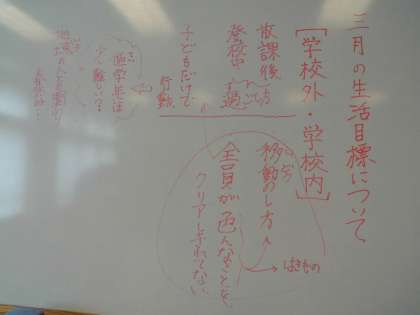 三月の生活目標について
[学校外・学校内]
放課後
登校中
過ごし方
子どもだけで
行動
移動のし方
全員が色んなことを、
クリアしきれてない
はきもの
低学年は
少し難しい?